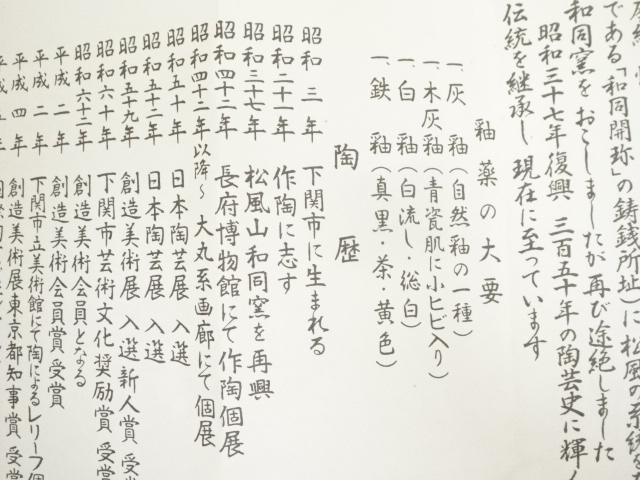 である「和同開珎」の鋳銭所址)に松風の系統を
和同窯を おこしましたが再び途絶しました
昭和三十七年復興 三百五十年の陶芸史に輝く
伝統を継承し 現在に至っています
釉薬の大要
一、灰 釉(自然釉の一種)
一、木灰釉(青瓷肌に小ヒビ入り)
一、白 釉(白流し・総白)
一、鉄 釉(真黒・茶・黄色)
陶 歴
昭和 三 年 下関市に生まれる
昭和二十一年 作陶に志す
昭和三十七年 松風山和同窯を再興
昭和四十二年 長府博物館にて作陶個展
昭和四十二年以降〜 大丸系画廊にて個展
昭和五十年 日本陶芸展 入選
昭和五十二年 日本陶芸展 入選
昭和五十九年 創造美術展 入選新人賞 受
昭和六十年 下関市芸術文化奨励賞 受賞
昭和六十二年 創造美術会員となる
平成 二 年 創造美術会員賞 受賞
平成 二 年 下関市立美術館にて陶によるレリーフ個
平成 四 年 創造美術展東京都知事賞 受賞